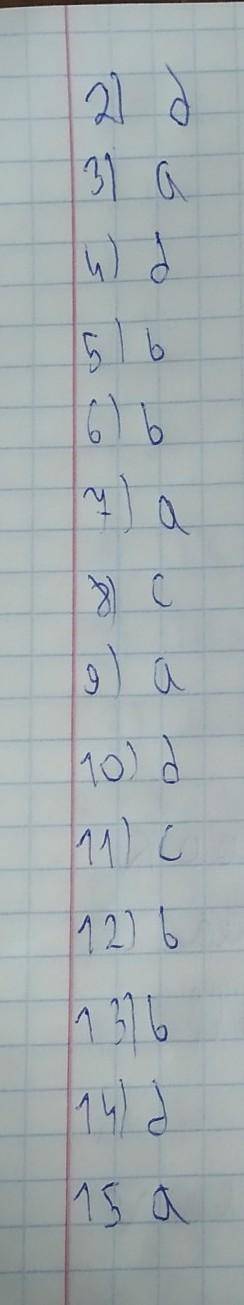 2) d
3) a
4) d
5) b
6) b
7) a
8) c
9) a
10) d
11) c
12) b
13) b
14) d
15 a